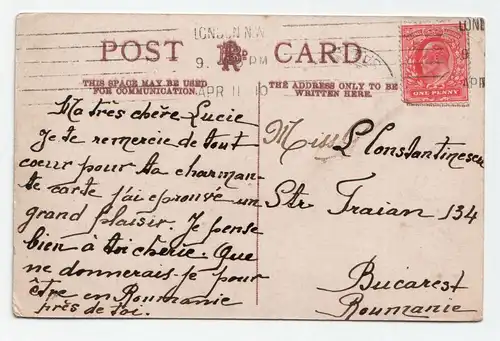 LONDON N.W
9. PM
APR 11 10
POST CARD
THIS SPACE MAY BE USED
FOR COMMUNICATION.
THE ADDRESS ONLY TO BE
WRITTEN HERE.
LON
9
APR
ONE PENNY
Ma très chère Lucie
Je te remercie de tout
coeur pour ta charman-
te carte j'ai eprouvée un
grand plaisir. Je pense
bien à toi cherie. Que
ne donnerais-je pour
être en Roumanie
près de toi.
Miss L Constantinescu
Str Traian 134
Bucarest
Roumanie